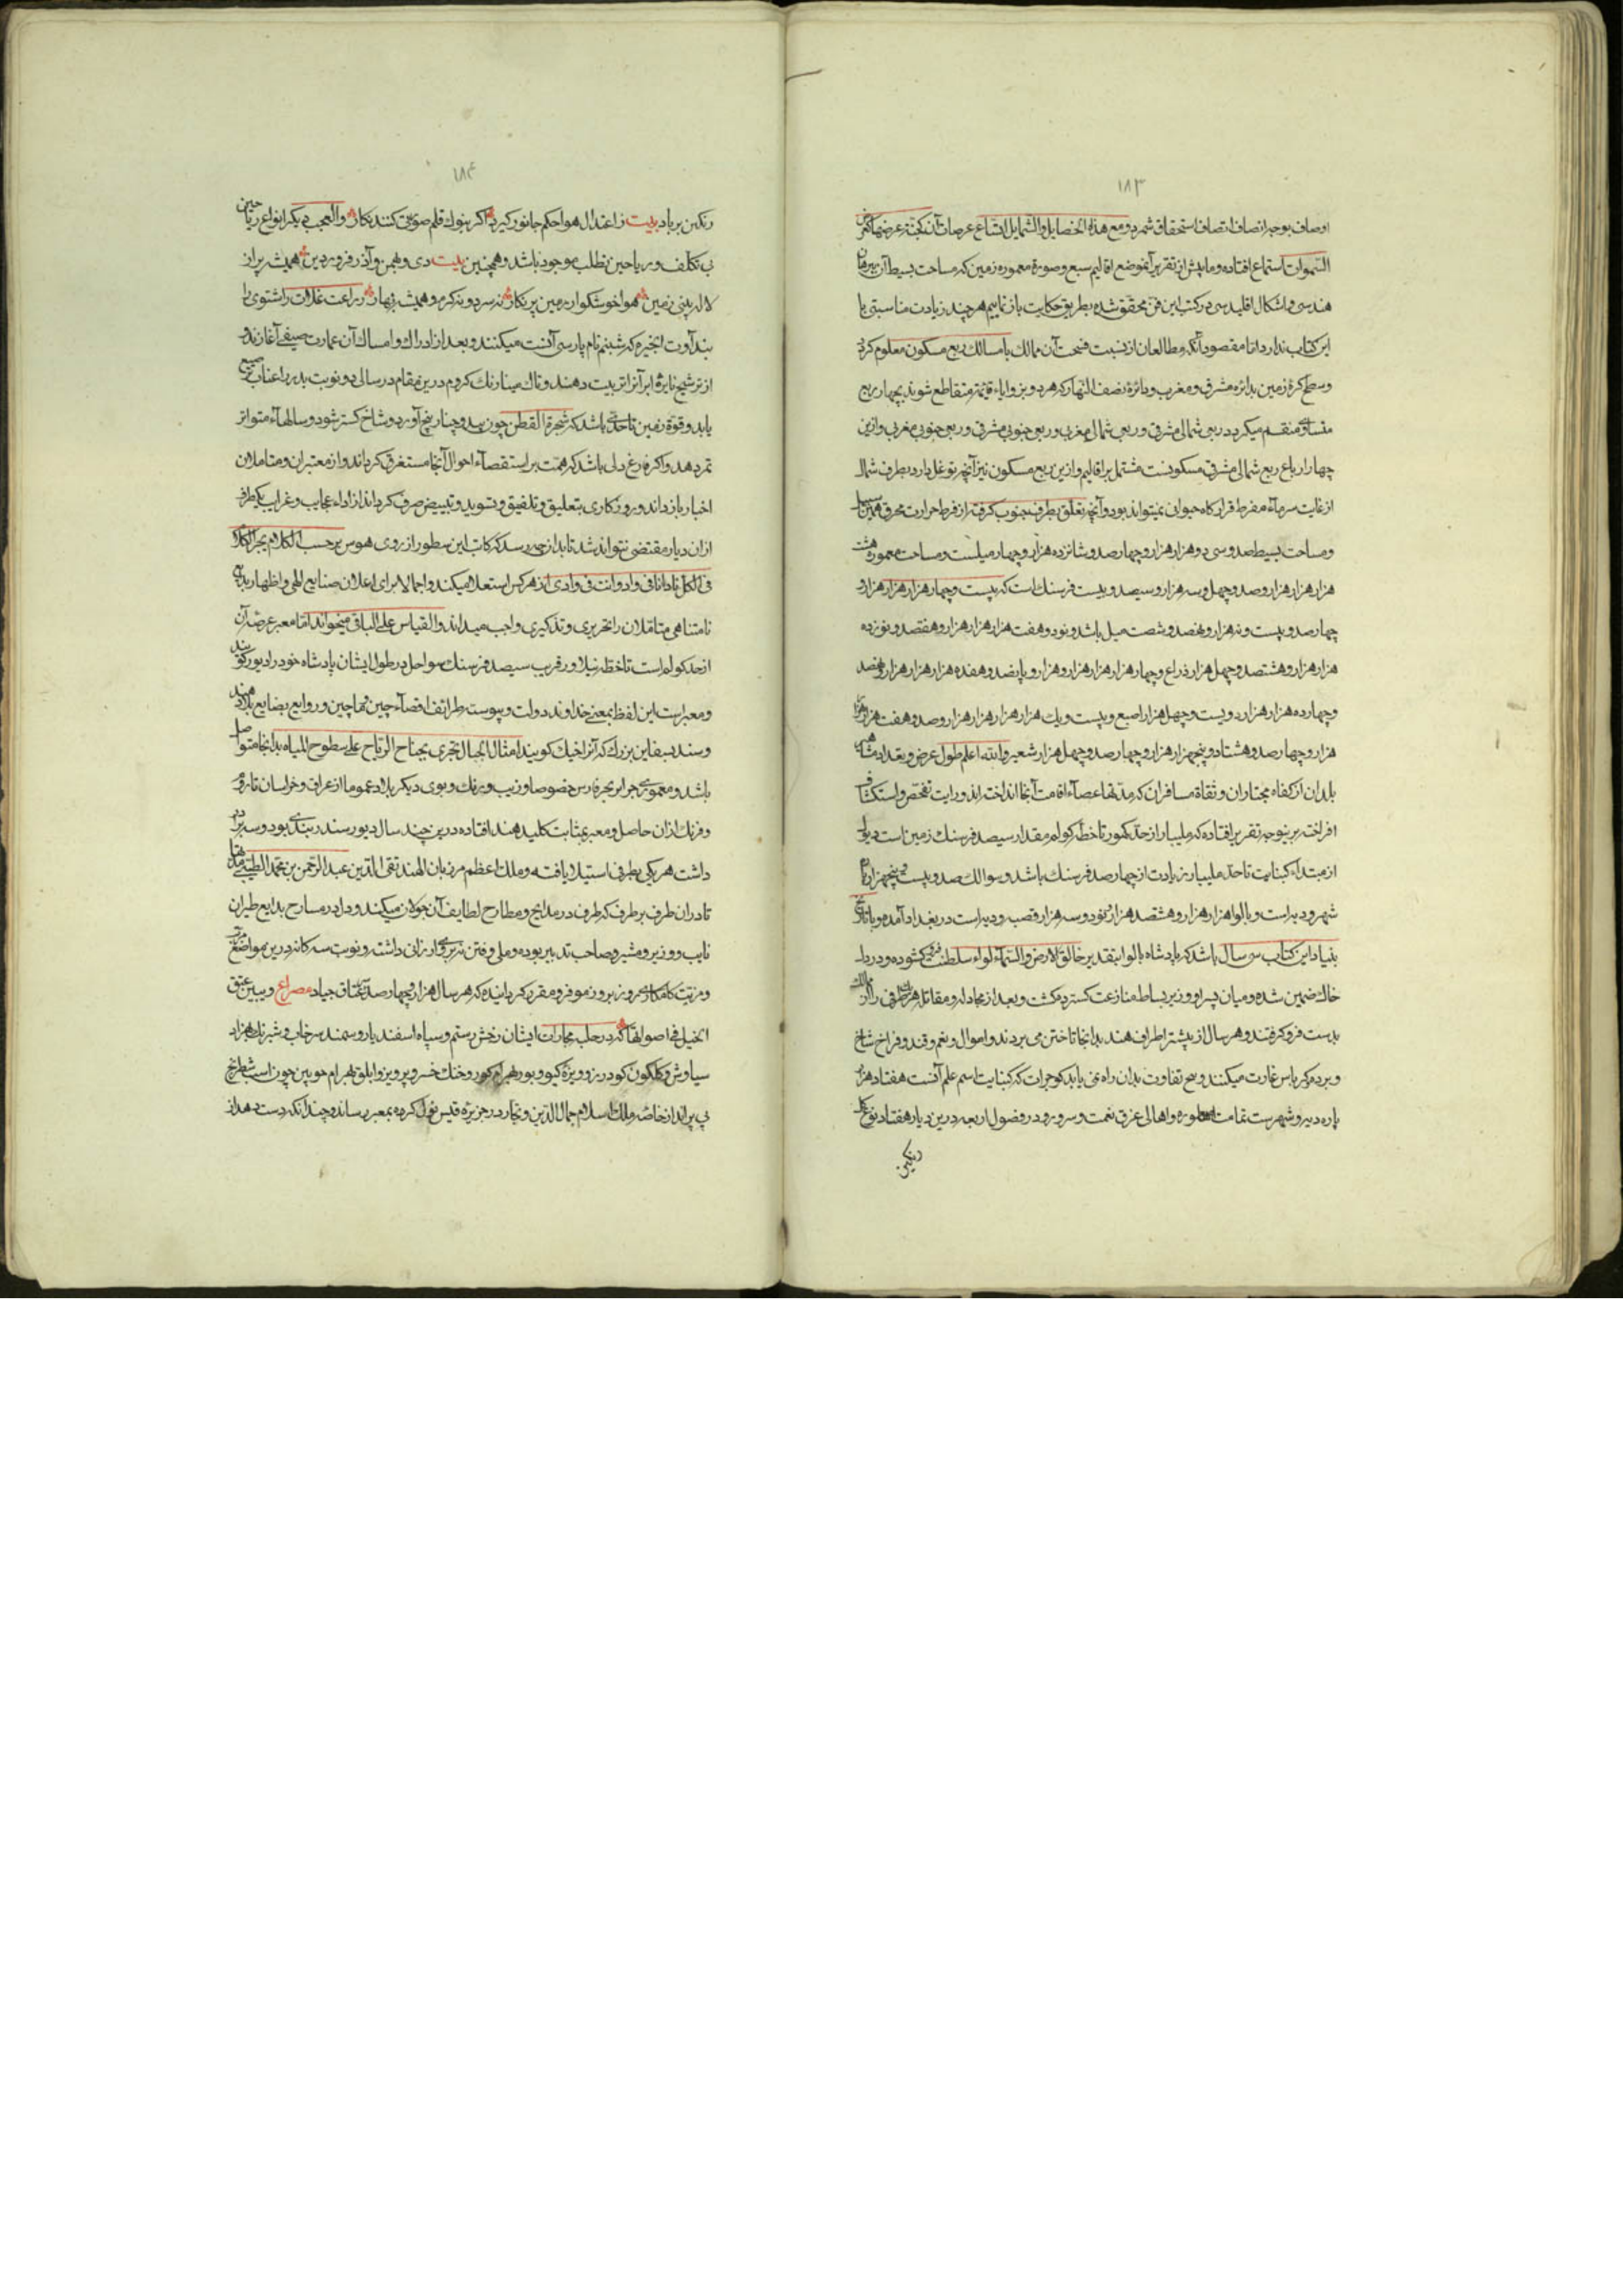 ۱۸۳
اوصاف بوجه انصاف اتصاف استحقاق شمرد و مع هذه الخصایل والشمایل اتساع عرصات آن کجنة عرضها کعرض
السموات استماع افتاده و ما پیش از تقریر آنموضع اقالیم سبع و صورة معموره زمین که مساحت بسیط آن ببرهان
هندسی و اشکال اقلیدسی در کتب این فن محقق شده بطریق حکایت باز نماییم هر چند زیادت مناسبتی با
این کتاب ندارد اما مقصود آنکه مطالعان از نسبت فسحت آن ممالک با مسالک ربع مسکون معلوم کردد
وسطح کرۀ زمین بدائره مشرق و مغرب و دائرۀ نصف النهار که هر دو بر زوایاء قائمه متقاطع شوند بچهار ربع
متساوی منقسم میکردد ربعی شمالی مشرقی و ربعی شمالی مغربی و ربعی جنوبی مشرقی و ربعی جنوبی مغربی و ازین
چهار ارباع ربع شمالی مشرقی مسکونست مشتمل بر اقالیم و ازین ربع مسکون نیز آنچه توغل دارد بطرف شمال
از غایت سرماء مفرط قرارکاه حیوان نمیتواند بود و آنچه تعلق بطرف جنوب کرفته از فرط حرارت محرق همین سبیل
و مساحت بسیط صد و سی و دو هزار هزار و چهار صد و شانزده هزار و چهار میلست و مساحت معموره هشت
هزار هزار هزار و صد و چهل و سه هزار و سیصد و بیست فرسنک است که بیست و چهار هزار هزار هزار و
چهار صد و بیست و نه هزار و نهصد و شصت میل باشد و نود و هفت هزار هزار هزار و هفتصد و نوزده
هزار هزار و هشتصد و چهل هزار ذراع و چهار هزار هزار هزار و هزار و پانصد و هفده هزار هزار هزار و نهصد
و چهارده هزار هزار و دویست و چهل هزار اصبع و بیست و یک هزار هزار هزار هزار و صد و هفت هزار هزار
هزار و چهار صد و هشتاد و پنجهزار هزار و چهار صد و چهل هزار شعیر والله اعلم طول عرض و بعد از مشاهیر
بلدان از کفاه مجتازان و ثقاة مسافران که مدتها عصاء اقامت آنجا انداخته اند و رایت تفحص و استکشاف
افراخته برینوجه تقریر افتاده که ملیبار از حد کنور تا خطه کولم مقدار سیصد فرسنک زمین است و بوالی
از مبتداء کنبایت تا حد ملیبار زیادت از چهار صد فرسنک باشد و سوالک صد و بیست و پنجهزار پاره
شهر و دیه است و بالوا هزار هزار و هشتصد هزار و نود و سه هزار و قصبه و دیه است در بغداد آمده و تا تاریخ
بنیاد این کتاب سی سال باشد که پادشاه بالوا بتقدیر خالق الارض والسماء لواء سلطنت کشوده و در دل
خاک ضمین شده و میان پسر او و وزیر بساط منازعت کسترده کشت و بعد از مجادله و مقاتله هر یک طرفی را از ممالک
بدست فرو کرفتند و هر سال از بیشتر اطراف هند بدانجا تاختن می بردند و اموال و نعم و قند و فراخ شاخ
و برده و کرباس غارت میکنند و هیچ تفاوت بدان راه نمی یابد کوجرات که کنبایت اسم علم آنست هفتاد هزار
پاره دیه و شهرست تمامت معموره و اهالی غرق نعمت و سرور و در فصول اربعه درین دیار هفتاد نوع کل
رنکین
۱۸۴
رنکین بر باد بیت ز اعتدال هوا حکم جانور کیرد اکر بنوک قلم صورتی کنند نکار والعجب دیکر انواع ریاحین
بی تکلف و ریاحین تطلب موجود باشد و همچنین بیت دی و بهمن و آذر و فروردین همیشه پر از
لاله بینی زمین هوا خوشکوار و زمین پر نکار نه سرد و نه کرم و همیشه بهار زراعت غلات را شتوی را
بنداوت ابخره که شبنم نام پارسی آنست میکنند و بعد از ادراک و امساک آن عمارت صیفی آغازند و
از ترشیح نایرۀ ابر آنرا تربیت دهند و تاک مینا رنک کروم درین مقام در سالی دو نوبت بدر اعناب
یابد و قوة زمین تا حدی باشد که شجرة القطن چون بید و چنار بیخ آورد و شاخ کستر شود و سالهاء متواتر
ثمر دهد و اکر فارغ دلی باشد که همت بر استقصاء احوال آنجا مستغرق کرداند و از معتبران و متاملان
اخبار باز داند و روزکاری بتعلیق و تلفیق و تسوید و تبییض صرف کرداند از اداء عجایب و غرایب یکطرف
ازان دیار مقتضی نتواند شد تا بدان چه رسد که کاتب این سطور از روی هوس بر حسب الکلام یجر الکلام
فی الکل نادانا فی واد وانت فی وادی از هر کس استعلام میکند و اجمالا برای اعلان صنایع الهی و اظهار بدایع
نامتناهی متاملان را تحریری و تذکیری واجب میداند والقیاس علی الباقی میخواند اما معبر عرضه آن
از حد کولم است تا خطه نیلاور قریب سیصد فرسنک سواحل در طول ایشان پادشاه خود را دیور کویند
و معبر است این لفظ بمعنی خداوند دولت و پیوسته طرائف اقصاء چین و ماچین و روایع بضایع بلاد هند
و سند بسفاین بزرک که آنرا خنک کویند امثال الجبال تجری بجناح الریاح علی سطوح المیاه بدانجا متواصل
باشد و معموری جزایر بحر فارس خصوصا و زیب و رنک و بوی دیکر بلاد عموما از عراق و خراسان تا روم
و فرنک ازان حاصل و معبر بمثابت کلید هند افتاده درین چند سال دیور سندر بندی بود و سه برادر
داشت هر یکی بطرفی استیلا یافته و ملک اعظم مرزبان الهند تقی الدین عبد الرحمن بن محمد الطیبی
تا دران طرف بر طرف که طرف در مدایح و مطارح لطایف آن جولان میکند و دل در مسارح بدایع طیران
نایب و وزیر و مشیر و صاحب تدبیر بوده و ملی و فتن تدبیر او ارزانی داشته و نوبت سه کانه درین مواضع
و مزیت کامکار هر روز بروز موفر و مقرر کردانیده که هر سال هزار و چهار صد عتاق جیاد مصراع و یبین عتق
الخیل فی اصواتها که در حلبه مجارات ایشان رخش رستم و سپاه اسفندیار و سمند سرخاب و شبرنک بهزاد
سیاوش و کلکون کودرز و ویزۀ کیو و بور بهرام کور و خنک خسرو پرویز و ابلق بهرام چوبین چون اسب شطرنج
پی پر اند از خاصه ملک اسلام جمال الدین و تجار در جزیره قیس تحمل کرده بمعبر رساند و چندانکه دست دهد از